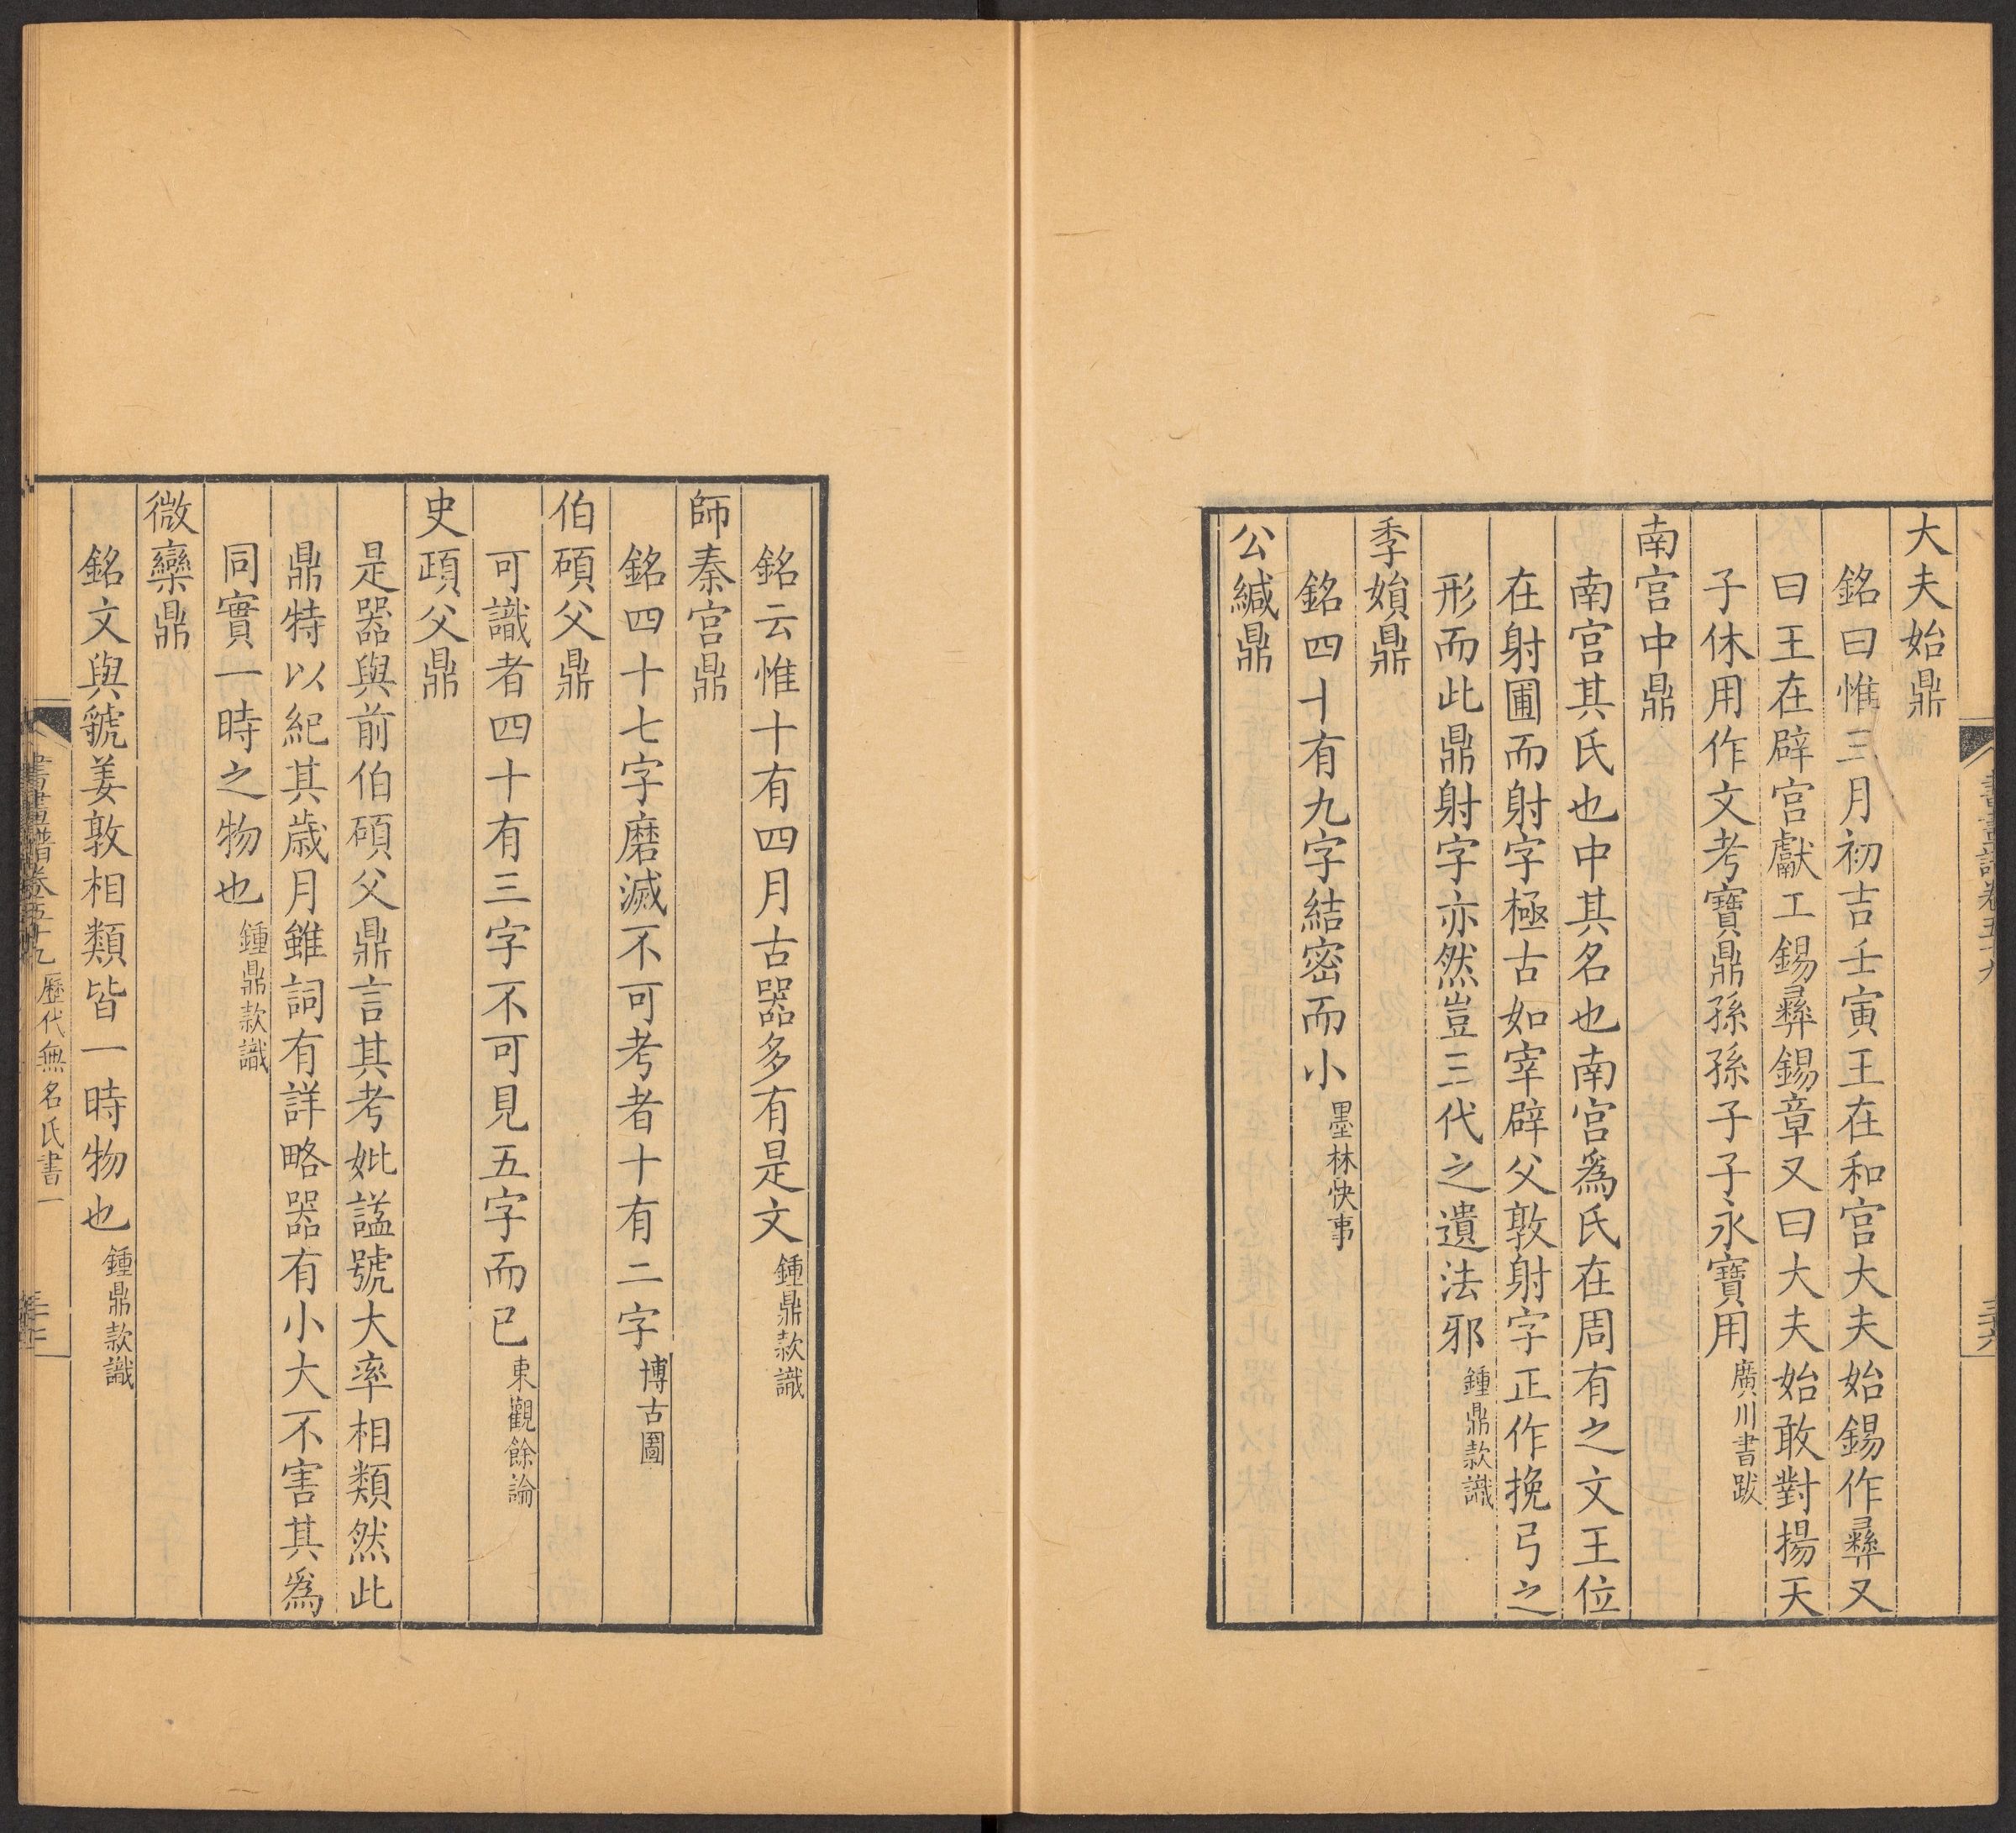 書畫譜卷五十九
三六
大夫始鼎
銘曰惟三月初吉壬寅王在和宮大夫始錫作彞又
曰王在辟宮獻工錫彞錫章又曰大夫始敢對揚天
子休用作文考寶鼎孫孫子子永寶用廣川書跋
南宮中鼎
南宮其氏也中其名也南宮爲氏在周有之文王位
在射圃而射字極古如宰辟父敦射字正作挽弓之
形而此鼎射字亦然豈三代之遺法邪鍾鼎款識
季娟鼎
銘四十有九字結密而小墨林快事
公緘鼎
銘云惟十有四月古器多有是文鍾鼎款識
師秦宮鼎
銘四十七字磨滅不可考者十有二字博古圖
伯碩父鼎
可識者四十有三字不可見五字而已東觀餘論
史頙父鼎
是器與前伯碩父鼎言其考妣諡號大率相類然此
鼎特以紀其歲月雖詞有詳略器有小大不害其爲
同實一時之物也鍾鼎款識
微欒鼎
銘文與虢姜敦相類皆一時物也鍾鼎款識
書畫譜卷五十九 歷代無名氏書一